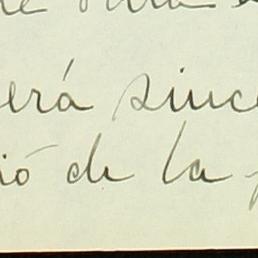 erá since
ió de la